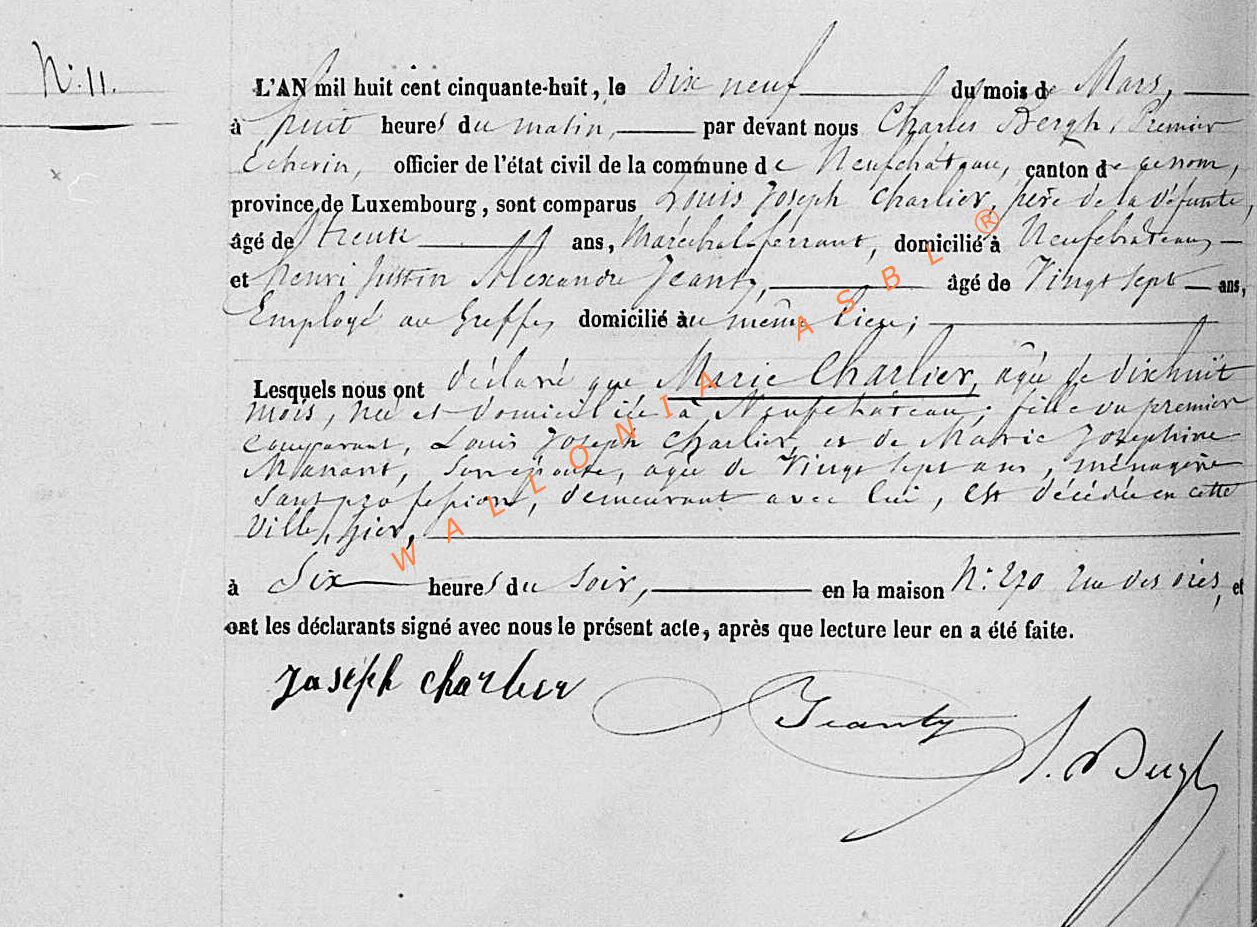 N.º 11.
L'AN mil huit cent cinquante-huit, le dix neuf du mois de Mars,
à huit heures du matin, par devant nous Charles Bergh, Premier
Echevin, officier de l'état civil de la commune de Neufchâteau, canton de ce nom,
province de Luxembourg, sont comparus Louis Joseph Charlier, père de la défunte,
âgé de trente ans, Maréchal-ferrant, domicilié à Neufchateau,
et henri Justin Alexandre Jeanty, âgé de Vingt sept ans,
Employé au Greffe, domicilié au même lieu;
Lesquels nous ont déclaré que Marie Charlier, agée de dixhuit
mois, née et domiciliée à Neufchâteau; fille du premier
comparant, Louis Joseph Charlier, et de Marie Josephine
Manant, son épouse, agée de Vingt sept ans, ménagère
sans profession, demeurant avec lui, est décédée en cette
Ville, hier,
à Six heures du soir, en la maison N.º 270 rue des et
ont les déclarants signé avec nous le présent acte, après que lecture leur en a été faite.
Joseph charlier
Jeanty
Bergh
WALLONIA ASBL ®